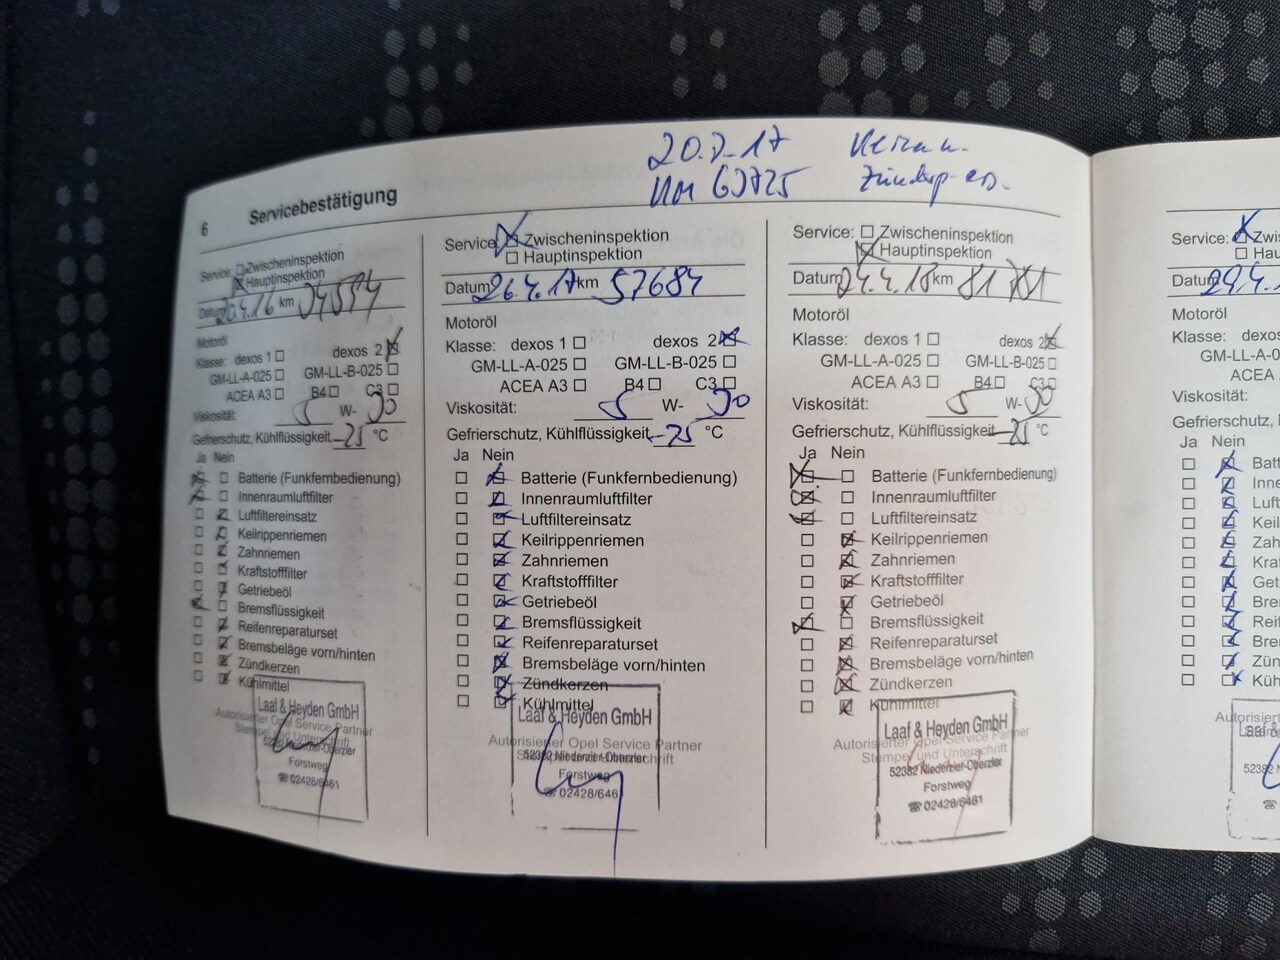 20.7.17
KM 63725
Zündkp. ers.
6 Servicebestätigung
Service: Zwischeninspektion
Hauptinspektion
Datum 20.4.16 km 34594
Motoröl
Klasse: dexos 1 dexos 2
GM-LL-A-025 GM-LL-B-025
ACEA A3 B4 C3
Viskosität: 5 W- 30
Gefrierschutz, Kühlflüssigkeit -25 °C
Ja Nein
Batterie (Funkfernbedienung)
Innenraumluftfilter
Luftfiltereinsatz
Keilrippenriemen
Zahnriemen
Kraftstofffilter
Getriebeöl
Bremsflüssigkeit
Reifenreparaturset
Bremsbeläge vorn/hinten
Zündkerzen
Kühlmittel
Laaf & Heyden GmbH
Autorisierter Opel Service Partner
Stempel und Unterschrift
52382 Niederzier-Oberzier
Forstweg
☎ 02428/6461
Service: Zwischeninspektion
Hauptinspektion
Datum 26.4.17 km 57684
Motoröl
Klasse: dexos 1 dexos 2
GM-LL-A-025 GM-LL-B-025
ACEA A3 B4 C3
Viskosität: 5 W- 30
Gefrierschutz, Kühlflüssigkeit -25 °C
Ja Nein
Batterie (Funkfernbedienung)
Innenraumluftfilter
Luftfiltereinsatz
Keilrippenriemen
Zahnriemen
Kraftstofffilter
Getriebeöl
Bremsflüssigkeit
Reifenreparaturset
Bremsbeläge vorn/hinten
Zündkerzen
Kühlmittel
Laaf & Heyden GmbH
Autorisierter Opel Service Partner
Stempel und Unterschrift
52382 Niederzier-Oberzier
Forstweg
☎ 02428/646
Service: Zwischeninspektion
Hauptinspektion
Datum 24.4.18 km 81
Motoröl
Klasse: dexos 1 dexos 2
GM-LL-A-025 GM-LL-B-025
ACEA A3 B4 C3
Viskosität: 5 W- 30
Gefrierschutz, Kühlflüssigkeit -25 °C
Ja Nein
Batterie (Funkfernbedienung)
Innenraumluftfilter
Luftfiltereinsatz
Keilrippenriemen
Zahnriemen
Kraftstofffilter
Getriebeöl
Bremsflüssigkeit
Reifenreparaturset
Bremsbeläge vorn/hinten
Zündkerzen
Kühlmittel
Laaf & Heyden GmbH
Autorisierter Opel Service Partner
Stempel und Unterschrift
52382 Niederzier-Oberzier
Forstweg
☎ 02428/6461
Service: Zwisc
Ha
Datum 29.4.
Motoröl
Klasse: dexos
GM-LL-A-0
ACEA
Viskosität:
Gefrierschutz,
Ja Nein
Batt
Inne
Luft
Keil
Zah
Kra
Get
Bre
Reif
Bre
Zün
Küh
Laaf &
Autorisie
52382 N
☎